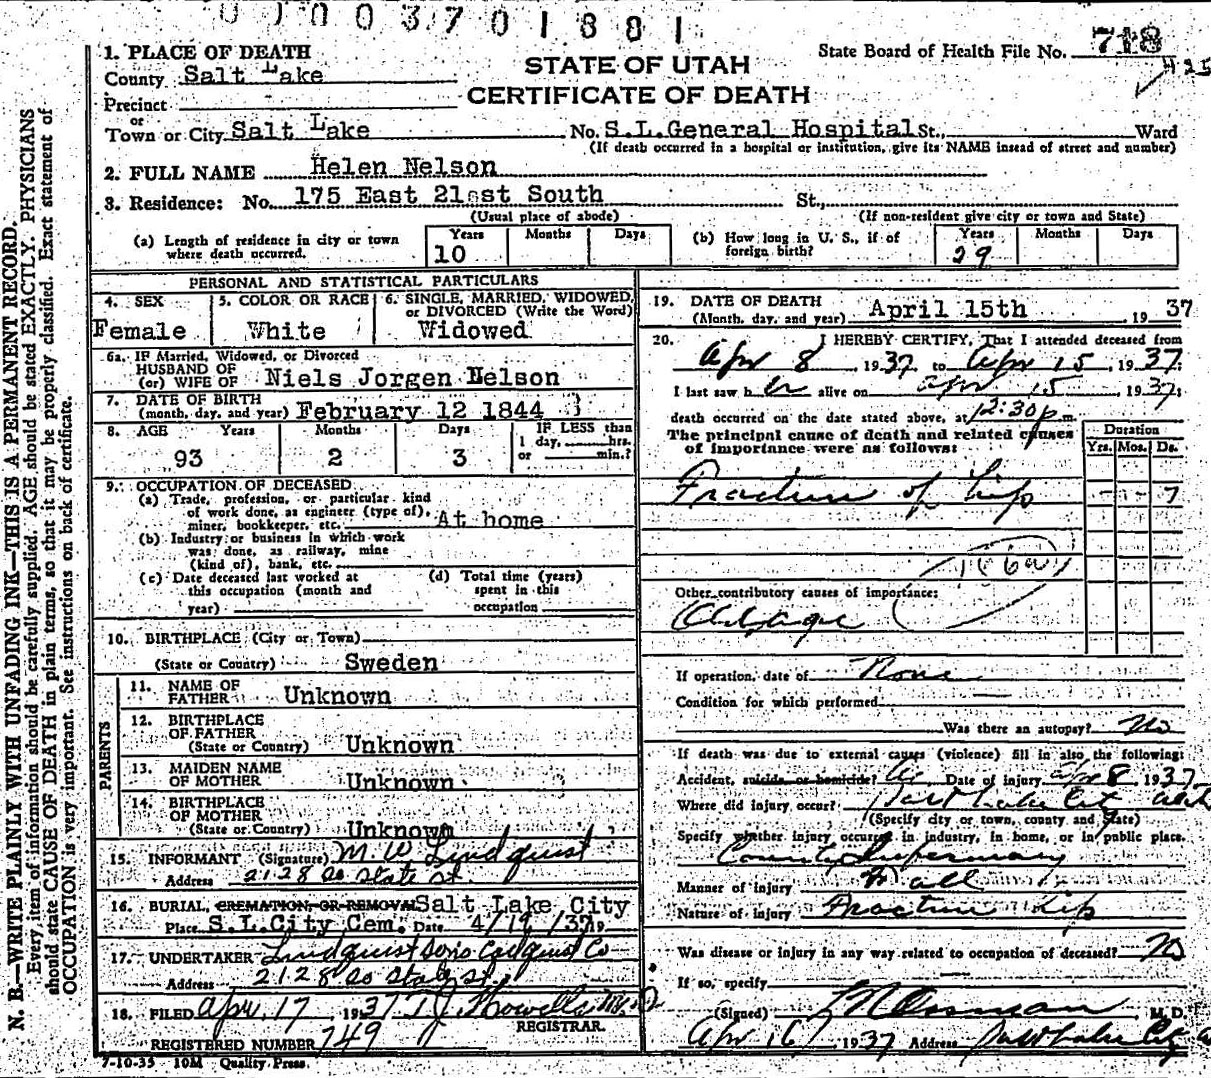 0 1 0 0 3 7 0 1 8 8 1
State Board of Health File No. 718
425
1. PLACE OF DEATH
STATE OF UTAH
CERTIFICATE OF DEATH
County Salt Lake
Precinct
or
Town or City Salt Lake No. S.L.General Hospital St., Ward
(If death occurred in a hospital or institution, give its NAME insead of street and number)
2. FULL NAME Helen Nelson
3. Residence: No. 175 East 21sst South St.,
(Usual place of abode) (If non-resident give city or town and State)
(a) Length of residence in city or town where death occurred. Years 10 Months Days
(b) How long in U. S., if of foreign birth? Years 29 Months Days
PERSONAL AND STATISTICAL PARTICULARS
4. SEX Female
5. COLOR OR RACE White
6. SINGLE, MARRIED, WIDOWED, or DIVORCED (Write the Word) Widowed
6a. IF Married, Widowed, or Divorced
HUSBAND OF
(or) WIFE OF Niels Jorgen Nelson
7. DATE OF BIRTH
(month, day, and year) February 12 1844
8. AGE Years 93 Months 2 Days 3
IF LESS than
1 day, hrs.
or min.?
9. OCCUPATION OF DECEASED
(a) Trade, profession, or particular kind
of work done, as engineer (type of),
miner, bookkeeper, etc. At home
(b) Industry or business in which work
was done, as railway, mine
(kind of), bank, etc.
(c) Date deceased last worked at
this occupation (month and
year)
(d) Total time (years)
spent in this
occupation
10. BIRTHPLACE (City or Town)
(State or Country) Sweden
PARENTS
11. NAME OF
FATHER Unknown
12. BIRTHPLACE
OF FATHER
(State or Country) Unknown
13. MAIDEN NAME
OF MOTHER Unknown
14. BIRTHPLACE
OF MOTHER
(State or Country) Unknown
15. INFORMANT (Signature) M. W. Lindquist
Address 2128 So State St.
16. BURIAL, CREMATION, OR REMOVAL Salt Lake City
Place S.L.City Cem. Date 4/19 /37 19
17. UNDERTAKER Lindquist Sons Co
Address 2128 So State St.
18. FILED Apr 17 1937 T.J. Howells M.D.
REGISTRAR.
REGISTERED NUMBER 749
7-10-35 10M Quality Press.
19. DATE OF DEATH
(Month, day, and year) April 15th 19 37
20. I HEREBY CERTIFY, That I attended deceased from
Apr 8, 1937, to Apr 15, 1937;
I last saw her alive on Apr 15, 1937;
death occurred on the date stated above, at 12:30 p m.
The principal cause of death and related causes
of importance were as follows:
Duration
Yrs. Mos. Ds.
Fracture of hip 7
Other contributory causes of importance:
Old age
If operation, date of None
Condition for which performed
Was there an autopsy? No
If death was due to external causes (violence) fill in also the following:
Accident, suicide or homicide? Ac Date of injury Apr 8 1937
Where did injury occur? Salt Lake City Utah
(Specify city or town, county and State)
Specify whether injury occurred in industry, in home, or in public place.
County Infirmary
Manner of injury Fall
Nature of injury Fracture hip
Was disease or injury in any way related to occupation of deceased? No
If so, specify
(Signed) M. D.
Apr 16 1937 Address Salt Lake City
N. B.—WRITE PLAINLY WITH UNFADING INK—THIS IS A PERMANENT RECORD.
Every item of information should be carefully supplied. AGE should be stated EXACTLY. PHYSICIANS
should state CAUSE OF DEATH in plain terms, so that it may be properly classified. Exact statement of
OCCUPATION is very important. See instructions on back of certificate.